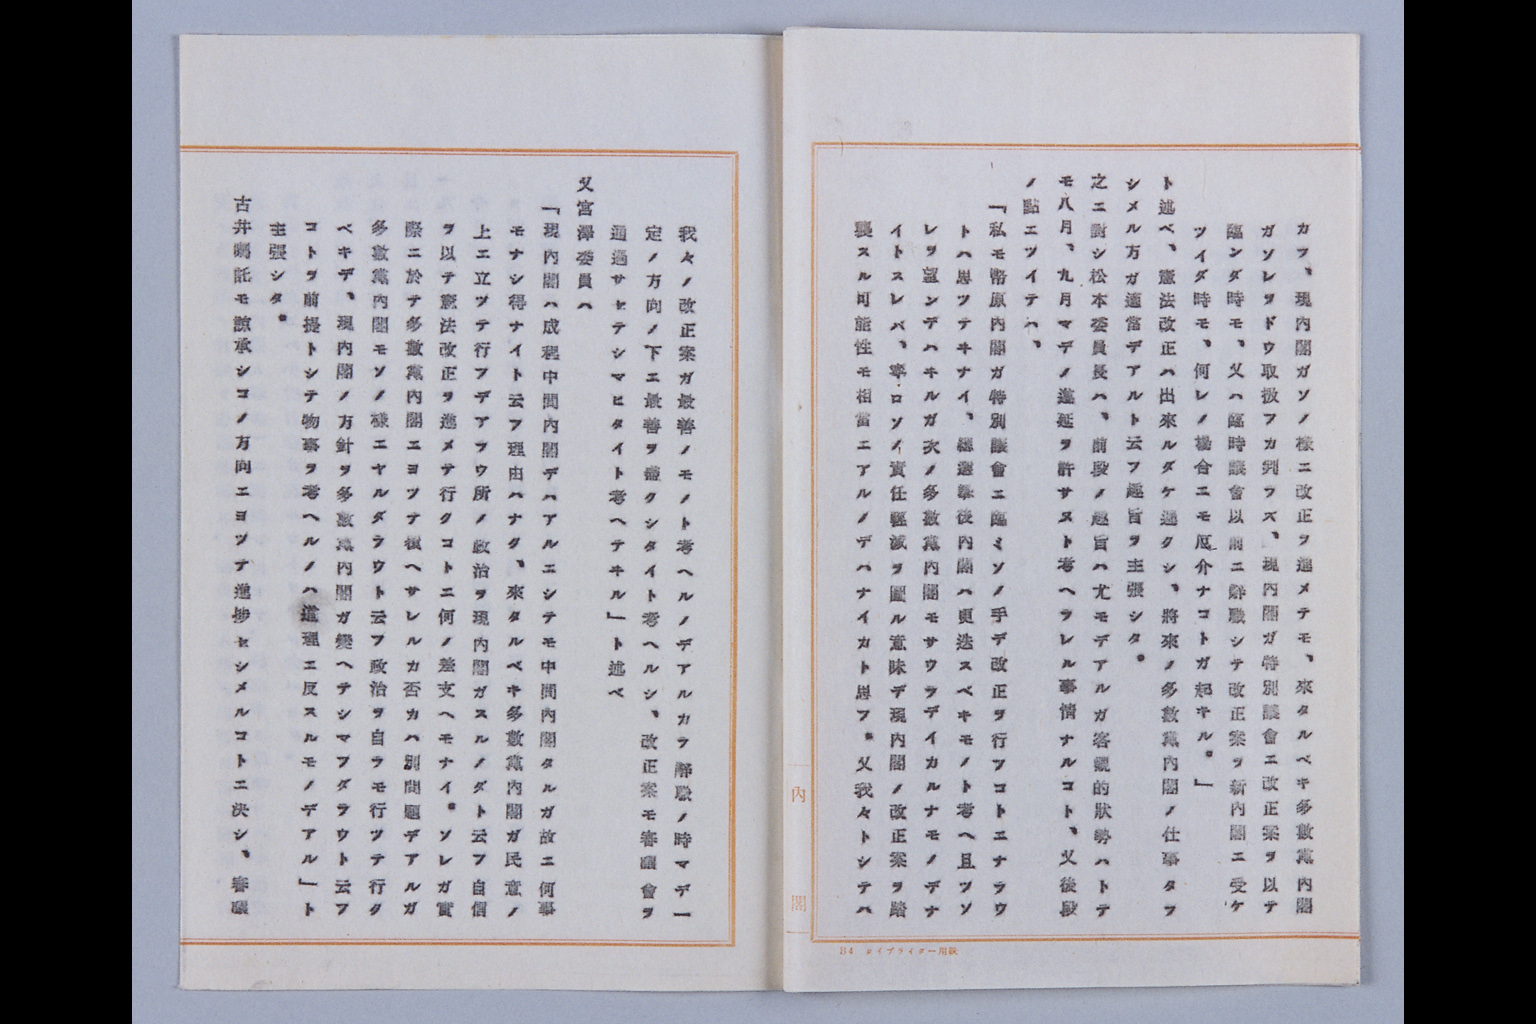 カフ、現内閣ガソノ樣ニ改正ヲ進メテモ、來タルベキ多數黨內閣
ガソレヲドウ取扱フカ判ラズ、現內閣ガ特別議會ニ改正案ヲ以テ
臨ンダ時モ、又ハ臨時議會以前ニ辭職シテ改正案ヲ新內閣ニ受ケ
ツイダ時モ、何レノ場合ニモ厄介ナコトガ起キル。」
ト述ベ、憲法改正ハ出來ルダケ遲クシ、將來ノ多數黨內閣ノ仕事タラ
シメル方ガ適當デアルト云フ趣旨ヲ主張シタ。
之ニ對シ松本委員長ハ、前段ノ趣旨ハ尤モデアルガ客觀的狀勢ハトテ
モ八月、九月マデノ遷延ヲ許サヌト考ヘラレル事情ナルコト、又後段
ノ點ニツイテハ、
「私モ幣原內閣ガ特別議會ニ臨ミソノ手デ改正ヲ行フコトニナラウ
トハ思ツテヰナイ、總選擧後內閣ハ更迭スベキモノト考ヘ且ツソ
レヲ望ンデハヰルガ次ノ多數黨內閣モサウラデイカルナモノデナ
イトスレバ、寧ロソノ責任輕減ヲ圖ル意味デ現內閣ノ改正案ヲ踏
襲スル可能性モ相當ニアルノデハナイカト思フ。又我々トシテハ
內閣
B4 タイプライター用紙
我々ノ改正案ガ最善ノモノト考ヘルノデアルカラ辭職ノ時マデ一
定ノ方向ノ下ニ最善ヲ盡クシタイト考ヘルシ、改正案モ審議會ヲ
通過サセテシマヒタイト考ヘテヰル」ト述ベ
又宮澤委員ハ
「現內閣ハ成程中間內閣デハアルニシテモ中間內閣タルガ故ニ何事
モナシ得ナイト云フ理由ハナク、來タルベキ多數黨內閣ガ民意ノ
上ニ立ツテ行フデアラウ所ノ政治ヲ現內閣ガスルノダト云フ自信
ヲ以テ憲法改正ヲ進メテ行クコトニ何ノ差支ヘモナイ。ソレガ實
際ニ於テ多數黨內閣ニヨツテ覆ヘサレルカ否カハ別問題デアルガ
多數黨內閣モソノ樣ニヤルダラウト云フ政治ヲ自ラモ行ツテ行ク
ベキデ、現內閣ノ方針ヲ多數黨內閣ガ變ヘテシマフダラウト云フ
コトヲ前提トシテ物事ヲ考ヘルノハ道理ニ反スルモノデアル」ト
主張シタ。
古井囑託モ諒承シコノ方向ニヨツテ進捗セシメルコトニ決シ、審議